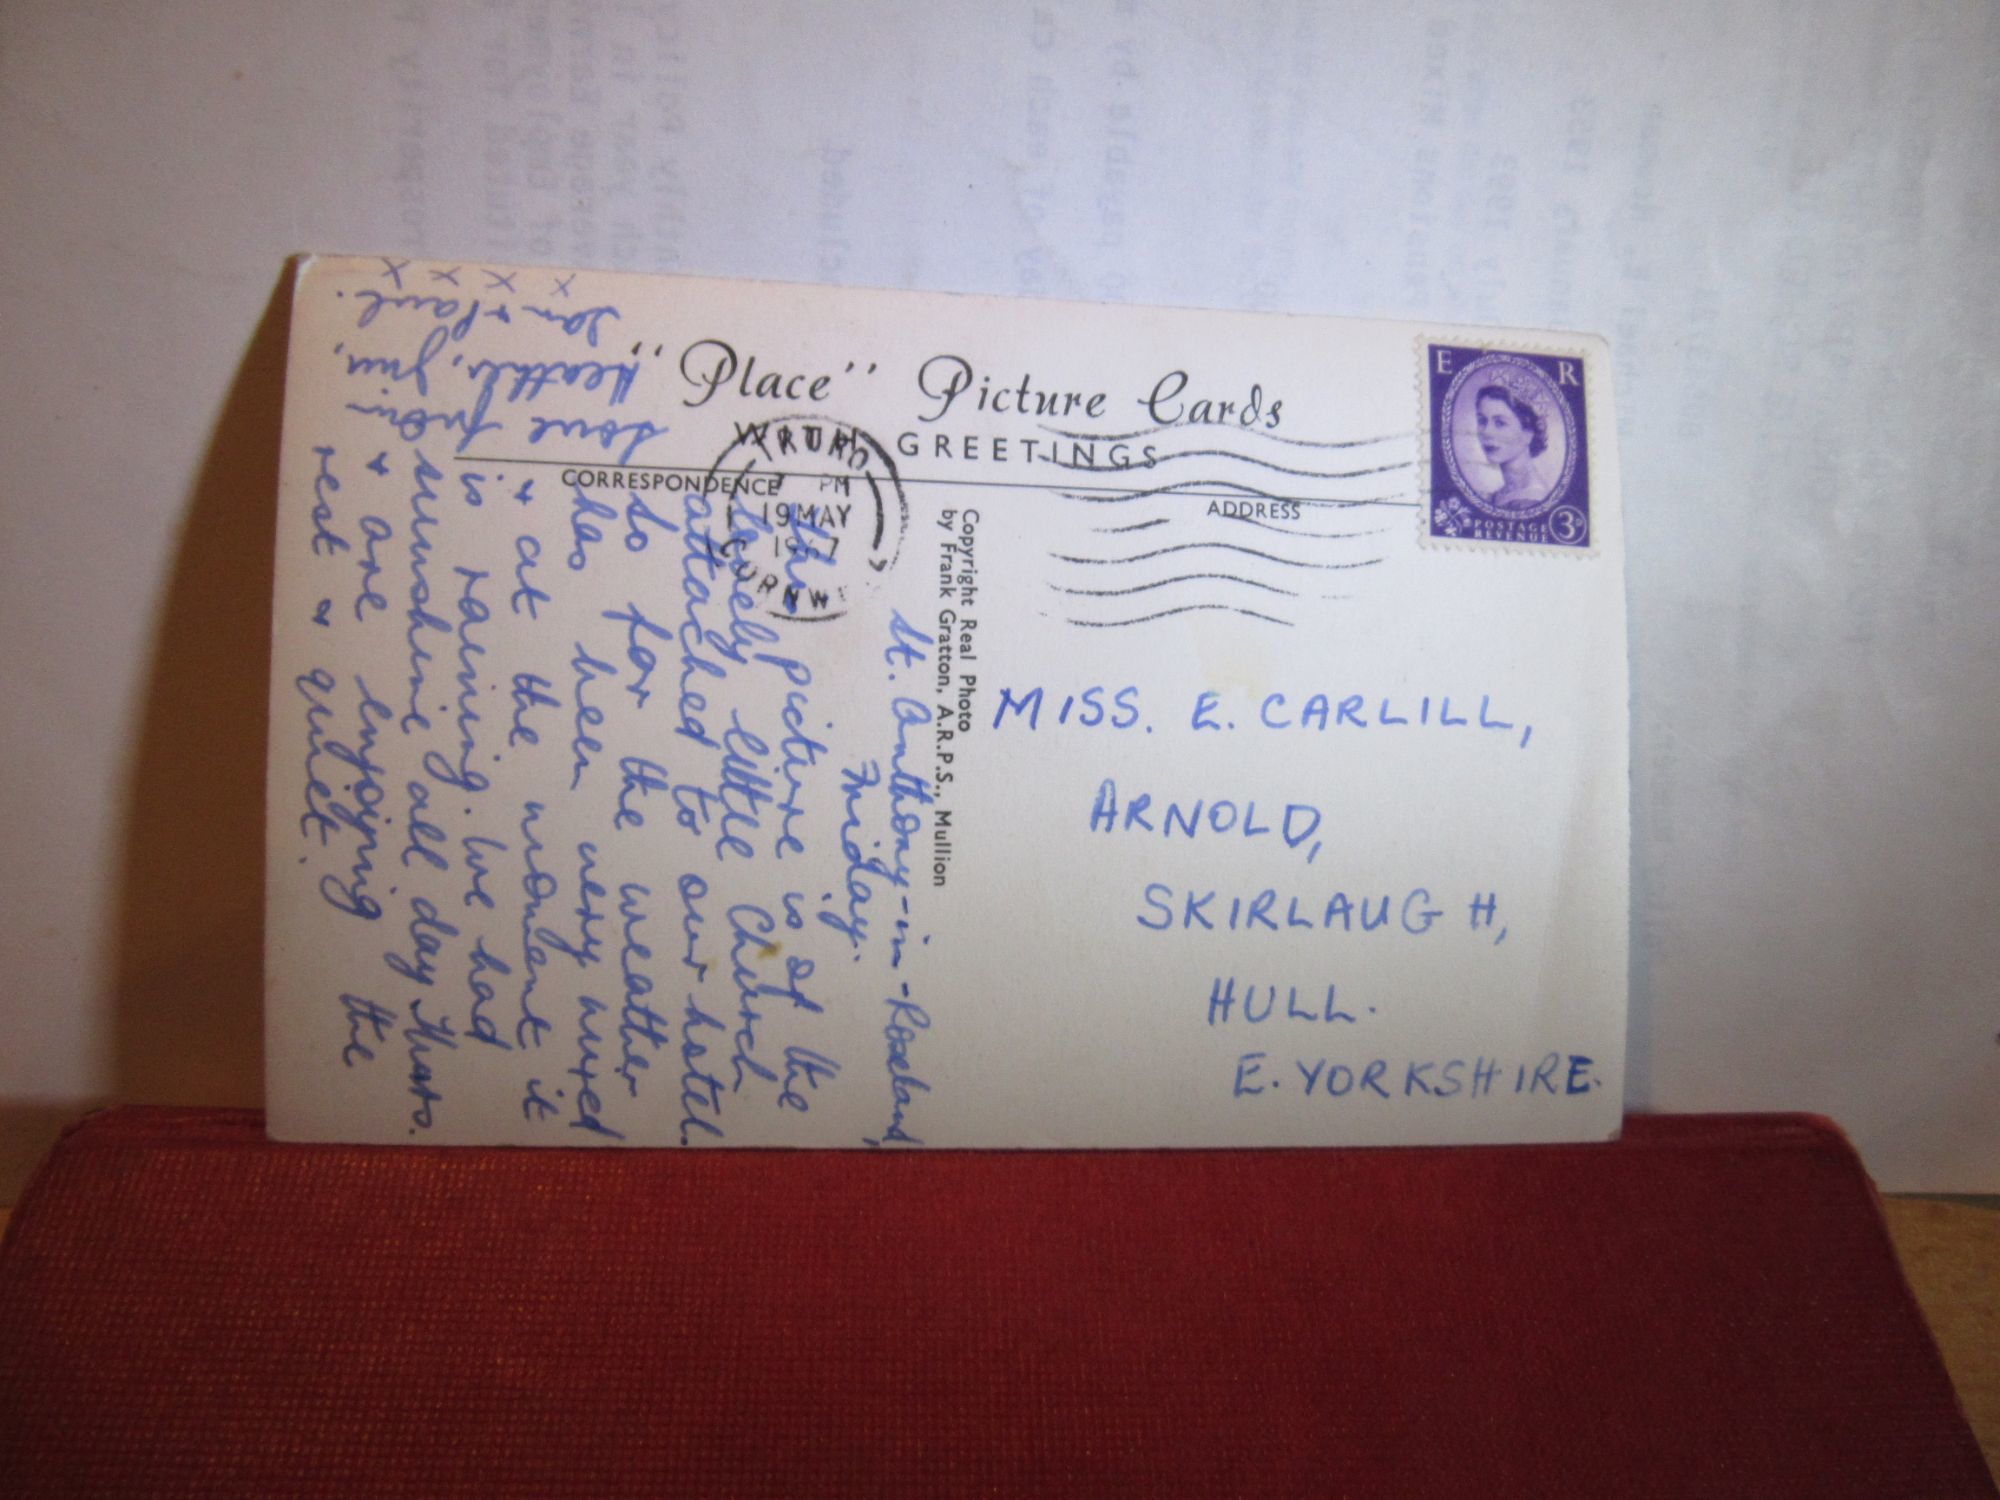 "Place" Picture Cards
WITH GREETINGS
CORRESPONDENCE
ADDRESS
TRURO
7 PM
19 MAY
CORNW
E R
POSTAGE
REVENUE
3D
Copyright Real Photo
by Frank Gratton, A.R.P.S., Mullion
St. Anthony-in-Roseland,
Friday.
This picture is of the
lovely little Church
attached to our hotel.
So far the weather
has been very mixed
& at the moment it
is raining. We had
sunshine all day Thurs.
& are enjoying the
rest & quiet.
Love from
Heather, Jim,
Ian & Paul.
x x x x
MISS. E. CARLILL,
ARNOLD,
SKIRLAUGH,
HULL.
E. YORKSHIRE.